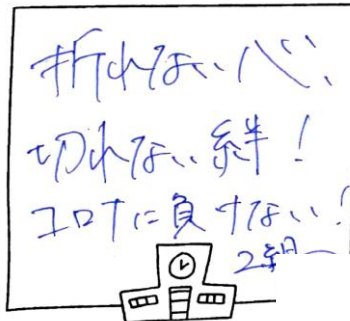 折れない心、
切れない絆！
コロナに負けない！
2組